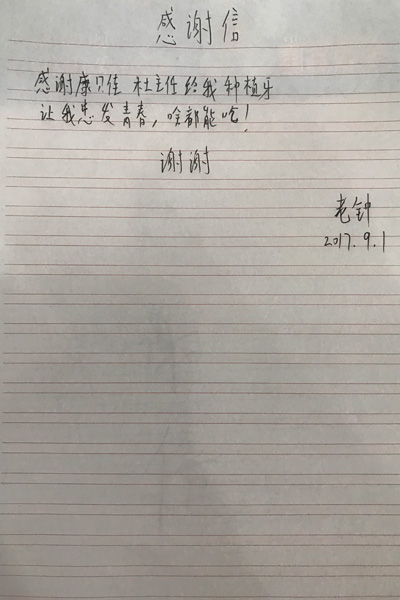 感谢信
感谢康贝佳 杜主任给我种植牙
让我焕发青春,啥都能吃!
谢谢
老钟
2017.9.1